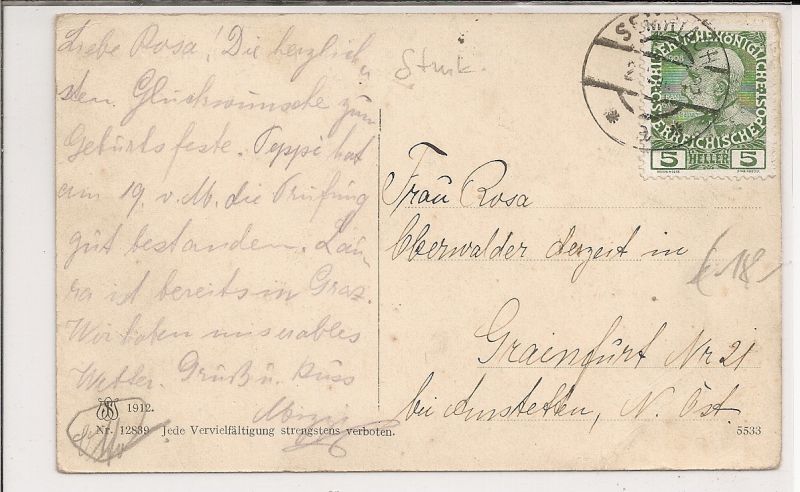 Liebe Rosa! Die herzlich
sten Glückwünsche zum
Geburtsfeste. Peppi hat
am 19. v. M. die Prüfung
gut bestanden. Lau-
ra ist bereits in Graz.
Wir haben miserables
Wetter. Gruß u. Kuss
Mizzi
Frau Rosa
Oberwalder derzeit in
Grainfurt Nr 21
bei Amstetten, N. Öst.
18
KAISERLICHE KÖNIGLICHE
ÖSTERREICHISCHE POST
1908
5 HELLER 5
1912.
Nr. 12839 Jede Vervielfältigung strengstens verboten.
5533